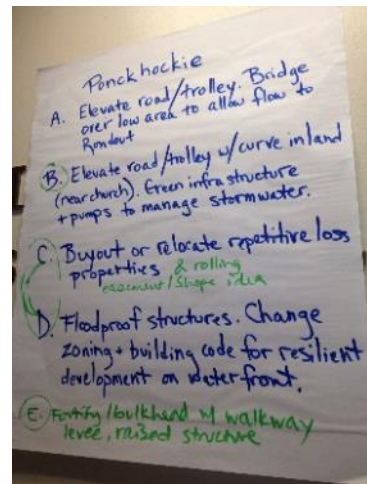 Ponckhockie
A. Elevate road/trolley. Bridge
over low area to allow flow to
Rondout
B. Elevate road/trolley w/curve inland
(near church). Green infrastructure
+ pumps to manage stormwater.
C. Buyout or relocate repetitive loss
properties & rolling
easement/slope idea
D. Floodproof structures. Change
zoning + building code for resilient
development on waterfront.
E. Fortify/bulkhead w/ walkway
levee, raised structure